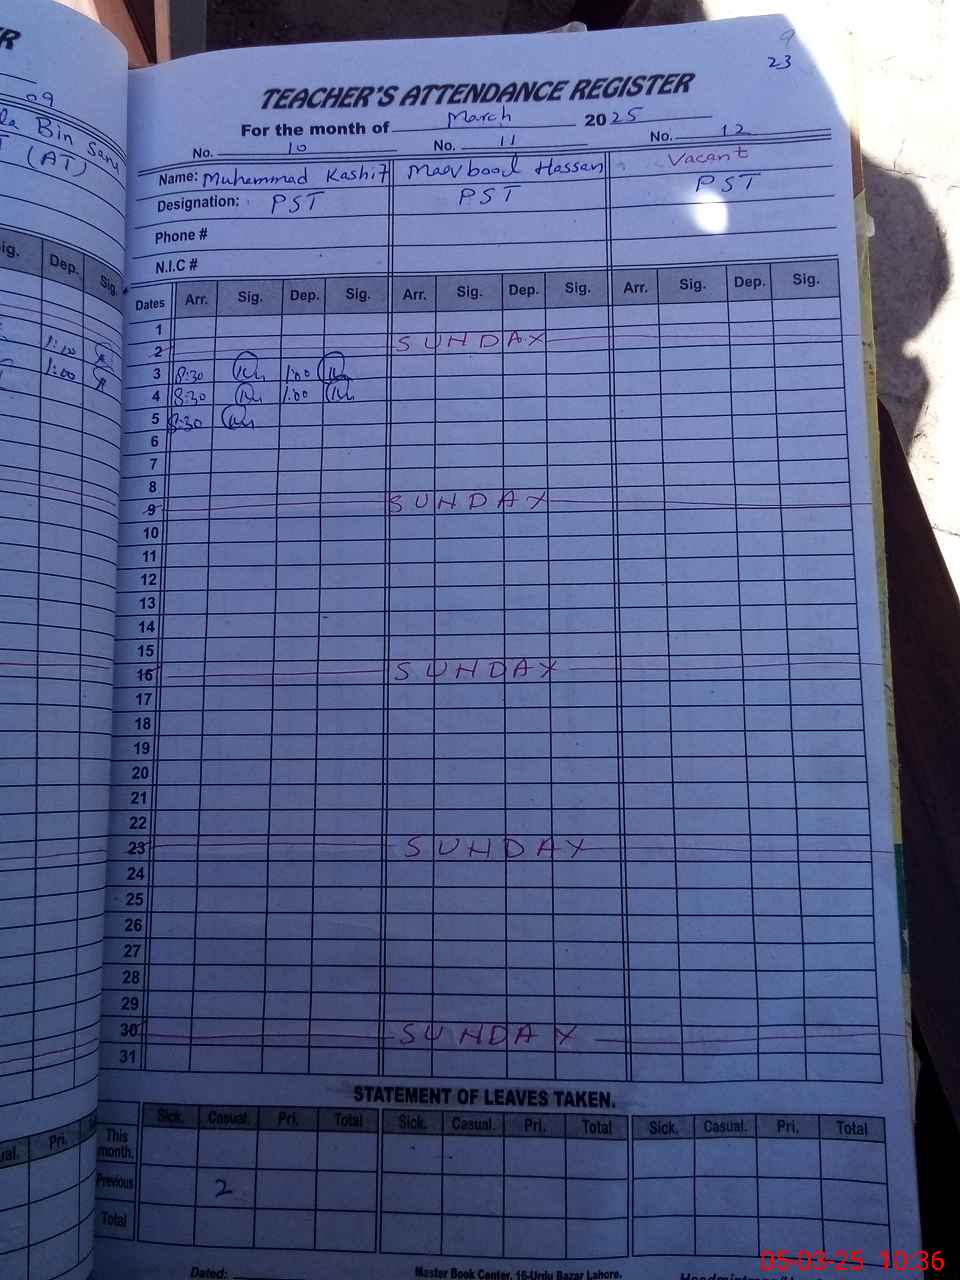 R
09
la Bin Sani
T (AT)
ig. Dep. Sig.
1:00
1:00
ual. Pri.
9
23
TEACHER'S ATTENDANCE REGISTER
For the month of March 2025
No. 10 No. 11 No. 12
Name: Muhammad Kashif Maqbool Hassan Vacant
Designation: PST PST PST
Phone #
N.I.C #
Dates Arr. Sig. Dep. Sig. Arr. Sig. Dep. Sig. Arr. Sig. Dep. Sig.
1
2 SUNDAY
3 8:30 1:00
4 8:30 1:00
5 8:30
6
7
8
9 SUNDAY
10
11
12
13
14
15
16 SUNDAY
17
18
19
20
21
22
23 SUNDAY
24
25
26
27
28
29
30 SUNDAY
31
STATEMENT OF LEAVES TAKEN.
Sick. Casual. Pri. Total Sick. Casual. Pri. Total Sick. Casual. Pri. Total
This month.
Previous 2
Total
Dated: Master Book Center, 15-Urdu Bazar Lahore.
05-03-25 10:36